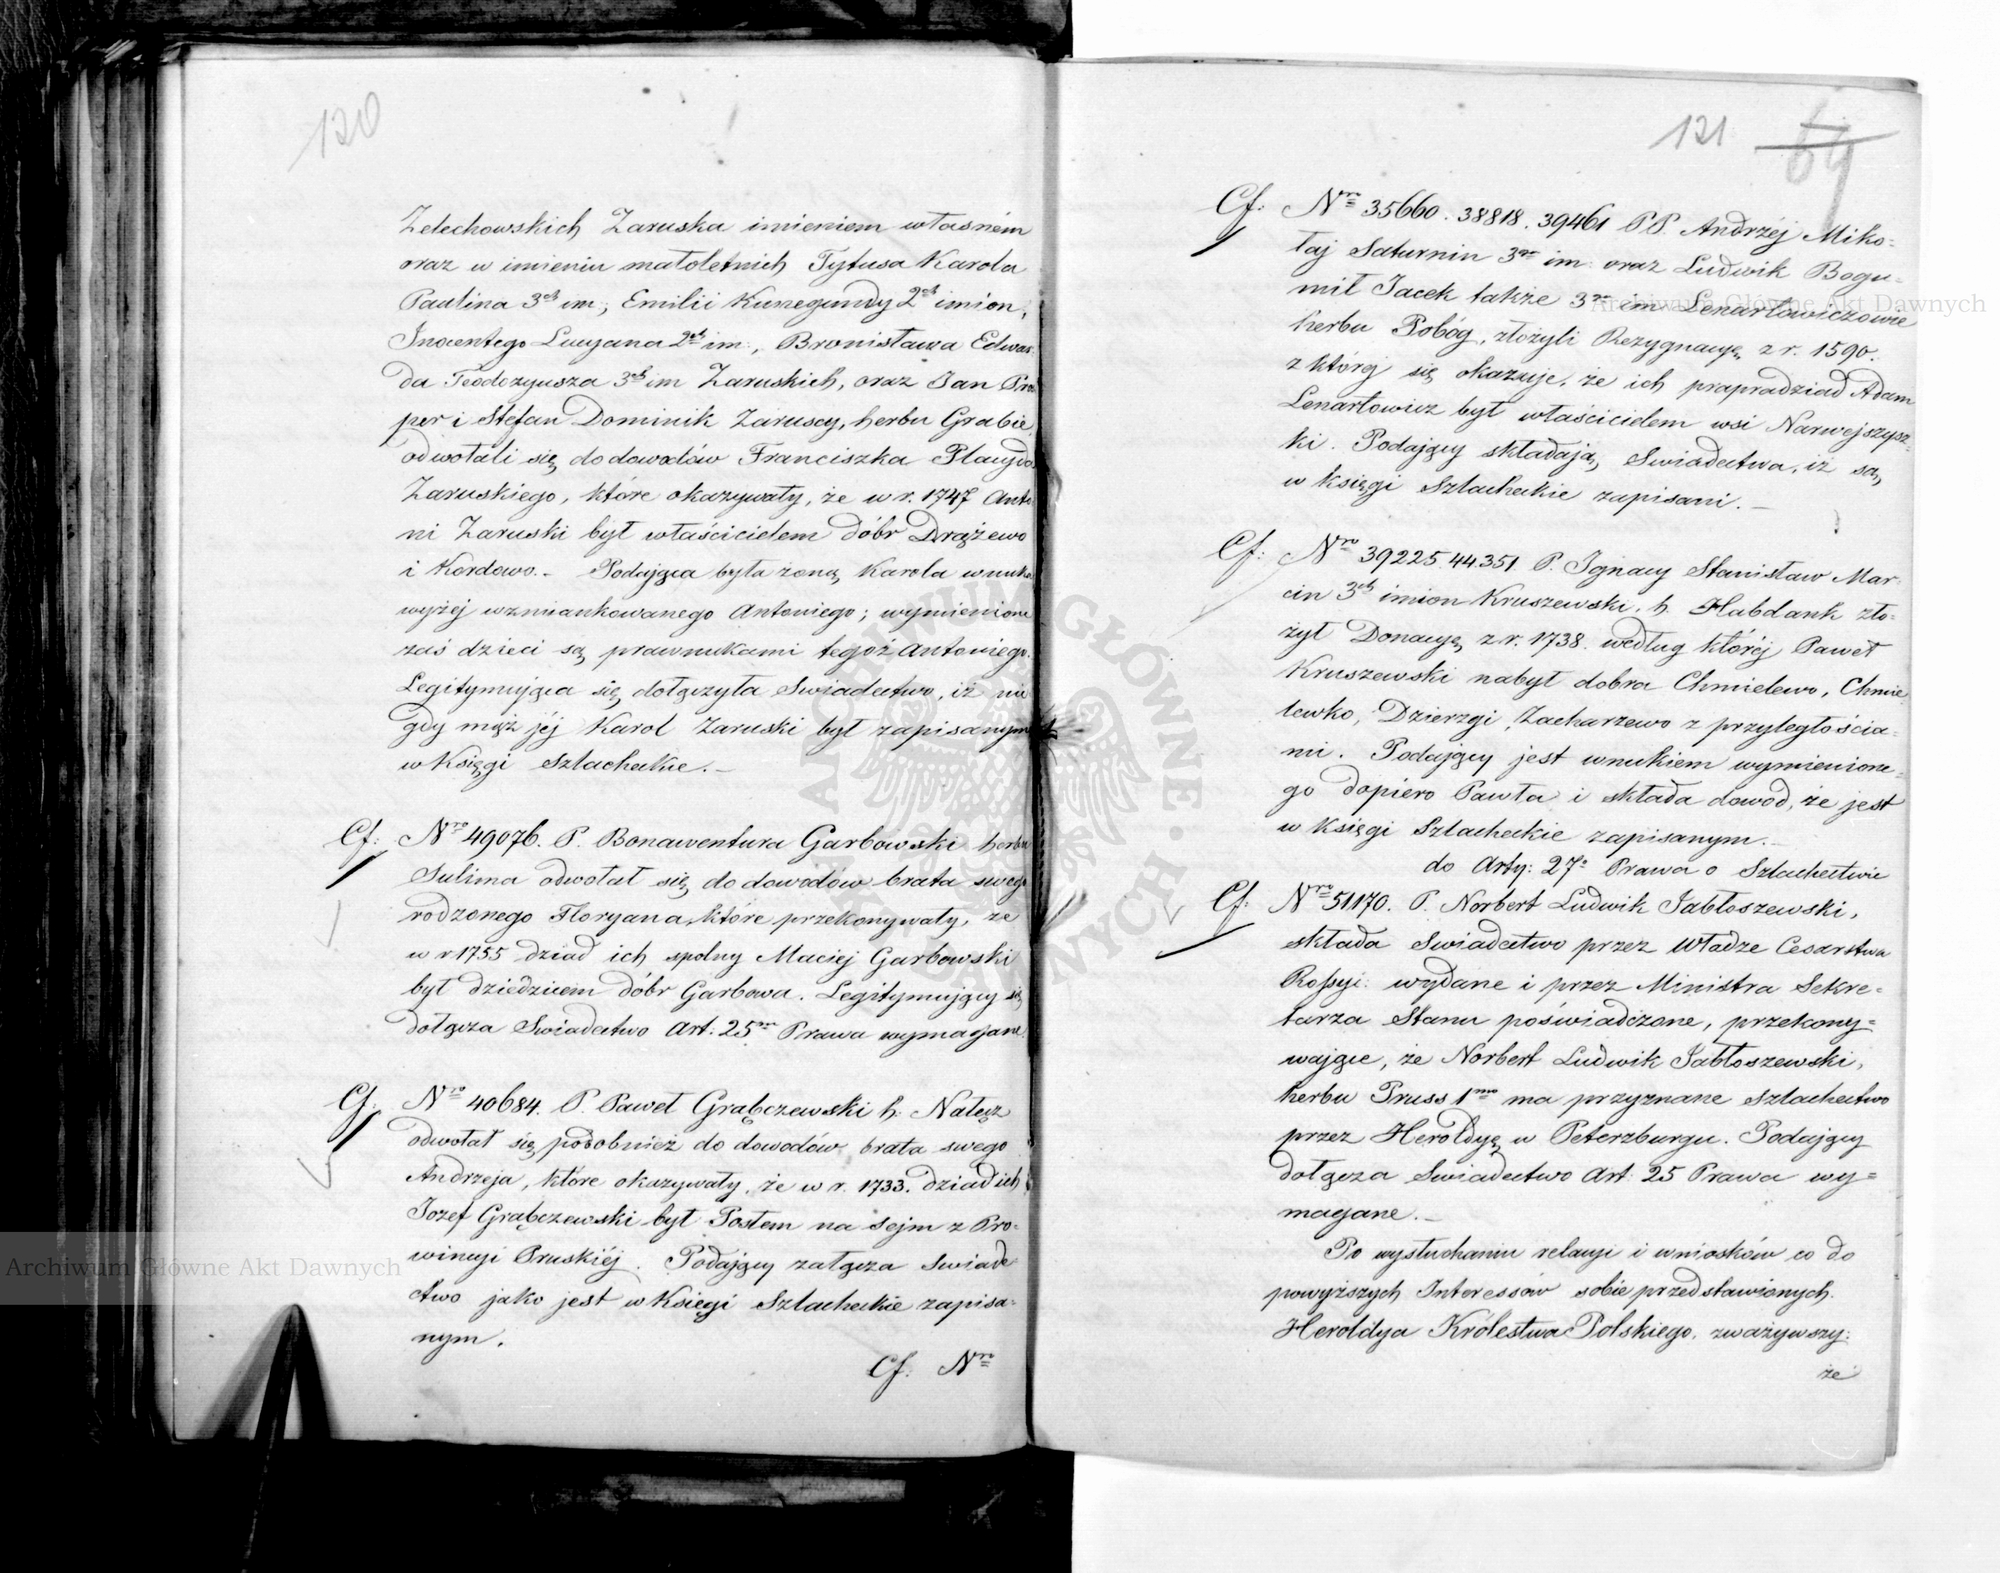 120
Zelechowskich Zaruska imieniem własném
oraz w imieniu małoletnich Tytusa Karola
Paulina 3ch im., Emilii Kunegundy 2ch imion,
Inocentego Lucyana 2ch im:, Bronisława Edwar
da Teodozyusza 3ch im Zaruskich, oraz Jan Pro
per i Stefan Dominik Zaruscy, herbu Grabie
odwołali się do dowodów Franciszka Placyda
Zaruskiego, które okazywały, że w r. 1747 Anto
ni Zaruski był właścicielem dóbr Drążewo
i Kordowo. – Podająca była żoną Karola wnuka
wyżéj wzmiankowanego Antoniego; wymienione
zaś dzieci są prawnukami tegoż Antoniego.
Legitymująca się dołączyła Swiadectwo, iż nie
gdy mąż jéj Karol Zaruski był zapisanym
w Księgi Szlacheckie. –
Cf: Nro 49076. P. Bonawentura Garbowski herbu
Sulima odwołał się do dowodów brata swego
rodzonego Floryana, które przekonywały, że
w r 1755 dziad ich spolny Maciej Garbowski
był dziedzicem dóbr Garbowa. Legitymujący się
dołącza Swiadectwo Art: 25m Prawa wymagane.
Cf: Nro 40684. P. Paweł Grąbczewski h: Nałęcz
odwołał się podobnież do dowodów brata swego
Andrzeja, które okazywały, że w r. 1733. dziad ich
Jozef Grąbczewski był Posłem na Sejm z Pro-
wincyi Pruskiéj. Podający załącza Swiade
ctwo jako jest w Księgi Szlacheckie zapisa-
nym.
Cf: Nro
121
Cf: Nro 35660. 38818. 39461 PP. Andrzéj Miko-
łaj Saturnin 3ch im: oraz Ludwik Bogu-
mił Jacek także 3ch im Lenartowiczowie
herbu Pobóg, złożyli Rezygnacyę z r. 1590.
z któréj się okazuje, że ich prapradziad Adam
Lenartowicz był właścicielem wsi Narwejszysz-
ki. Podający składają Swiadectwa, iż są
w księgi Szlacheckie zapisani. –
Cf: Nro 39225. 44.351. P. Ignacy Stanisław Mar
cin 3ch imion Kruszewski, h. Habdank zło-
żył Donacyę z r. 1738. według któréj Paweł
Kruszewski nabył dobra Chmielewo, Chmie
lewko, Dzierzgi, Zacharzewo z przyległościa-
mi. Podający jest wnukiem wymienione-
go dopiero Pawła i składa dowod, że jest
w Księgi Szlacheckie zapisanym. –
do Arty: 27o Prawa o Szlachectwie
Cf: Nro 51170. P. Norbert Ludwik Jabłoszewski,
składa Swiadectwo przez Władze Cesarstwa
Rossyi: wydane i przez Ministra Sekre-
tarza Stanu poświadczone, przekony=
wające, że Norbert Ludwik Jabłoszewski,
herbu Pruss 1mo ma przyznane szlachectwo
przez Heroldyę w Peterzburgu. Podający
dołącza Swiadectwo Art: 25 Prawa wy=
magane. –
Po wysłuchaniu relacyi i wniosków co do
powyższych Interessów sobie przedstawionych.
Heroldya Królestwa Polskiego, zważywszy:
że
Archiwum Główne Akt Dawnych
Archiwum Główne Akt Dawnych
ARCHIWUM GŁÓWNE AKT DAWNYCH